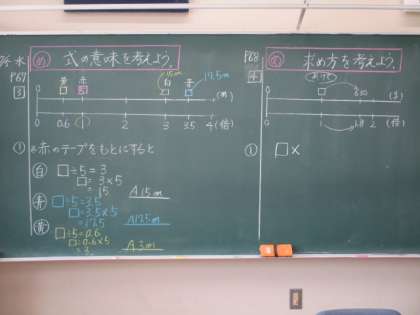 水
P67
3
め 式の意味を考えよう。
黄 赤 白 15m 青 17.5m
0 (m)
0 0.6 1 2 3 3.5 4(倍)
① 赤のテープをもとにすると
白 □÷5=3
□=3×5
=15 A 15m
青 □÷5=3.5
□=3.5×5
=17.5 A 17.5m
黄 □÷5=0.6
□=0.6×5
=3 A 3m
P68
4
め 求め方を考えよう。
0
0 1 1.8 2 (倍)
① □×